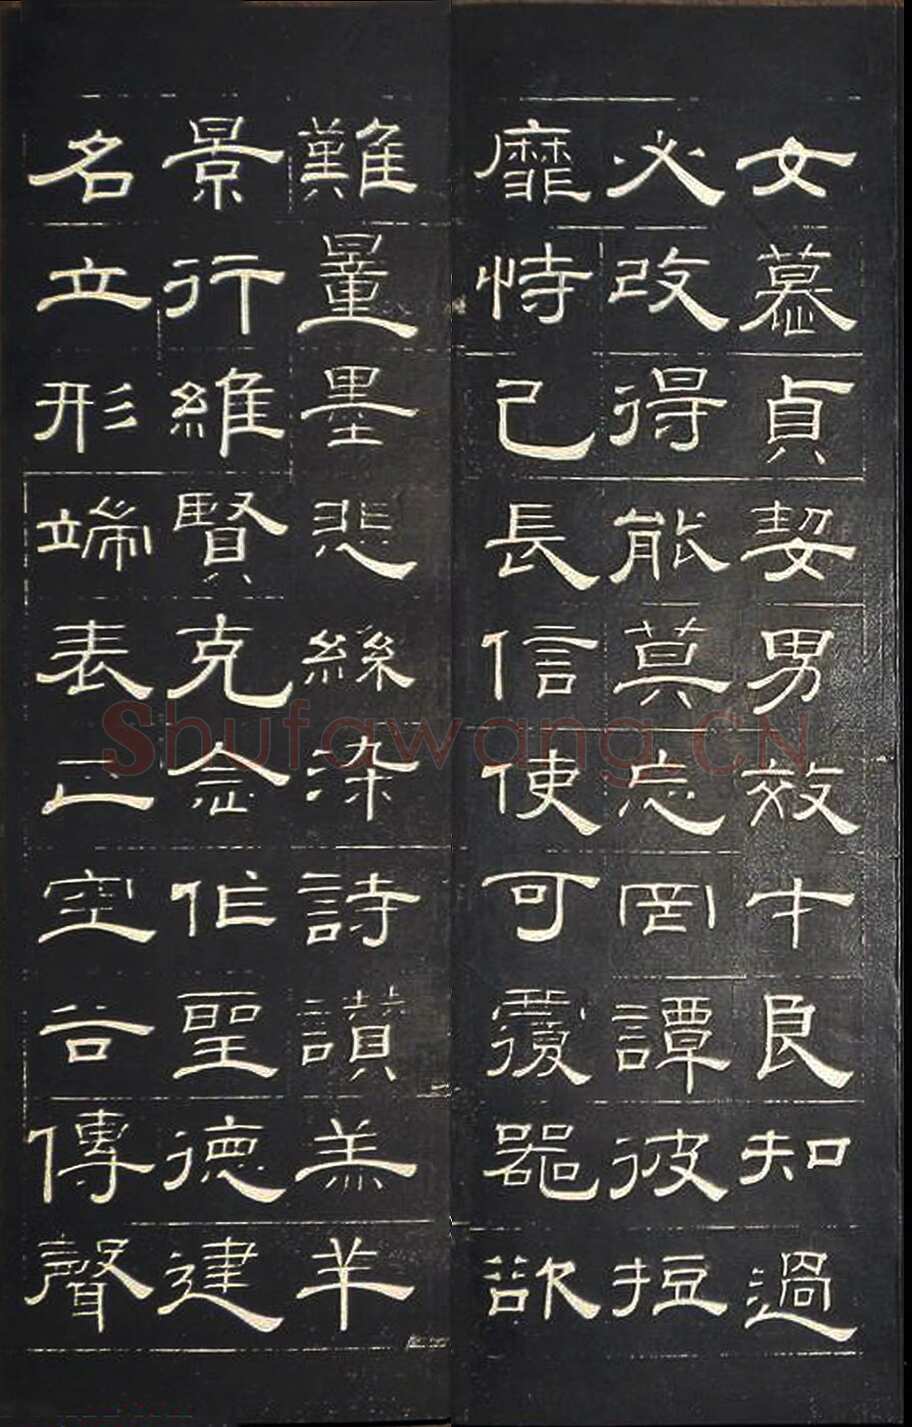 女慕貞絜男效才良知過
必改得能莫忘罔譚彼短
靡恃己長信使可覆器欲
難量墨悲絲染詩讚羔羊
景行維賢克念作聖德建
名立形端表正空谷傳聲
Shufawang.CN